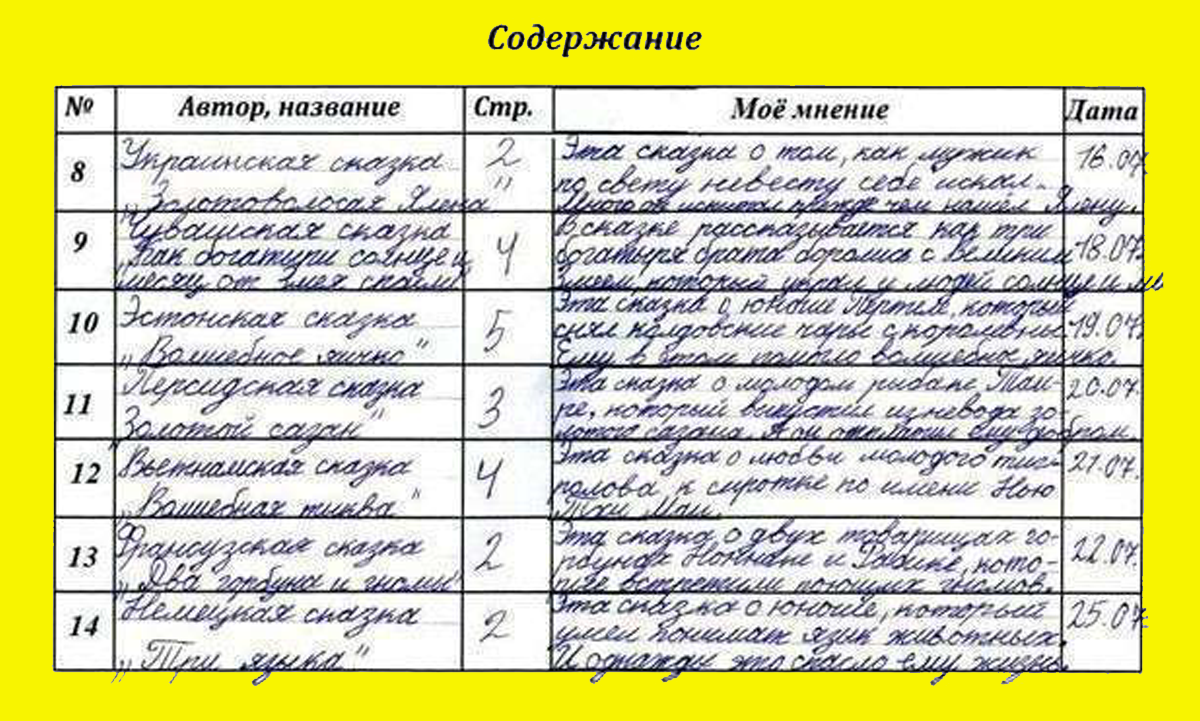 Содержание
№ Автор, название Стр. Моё мнение Дата
8 Украинская сказка 2 Эта сказка о том, как мужик 16.07.
по свету невесту себе искал.
„Золотоволосая Ялена" Много он испытал прежде чем нашёл Ялену.
9 Чувашская сказка 4 В сказке рассказывается как три 18.07.
„Как богатыри солнце и богатыря брата боролись с Великим
месяц от змея спасли" Змеем, который украл у людей солнце и
10 Эстонская сказка 5 Эта сказка о юноше который 19.07.
снял колдовские чары с королевны.
„Волшебное яичко" Ему в этом помогло волшебное яичко.
11 Персидская сказка 3 Эта сказка о молодом рыбаке Таи- 20.07.
ре, который выпустил из невода зо-
Золотой сазан" лотого сазана. А он отплатил ему добром.
12 Вьетнамская сказка 4 Эта сказка о любви молодого тиг- 21.07.
ролова к сиротке по имени Ною
„Волшебная тыква" Тхи Маи.
13 Французская сказка 2 Эта сказка о двух товарищах гор- 22.07.
бунах и кото-
„Два горбуна и гномы" рые встретили поющих гномов.
14 Немецкая сказка 2 Эта сказка о юноше, который 25.07.
умел понимать язык животных.
„Три языка" И однажды это спасло ему жизнь.